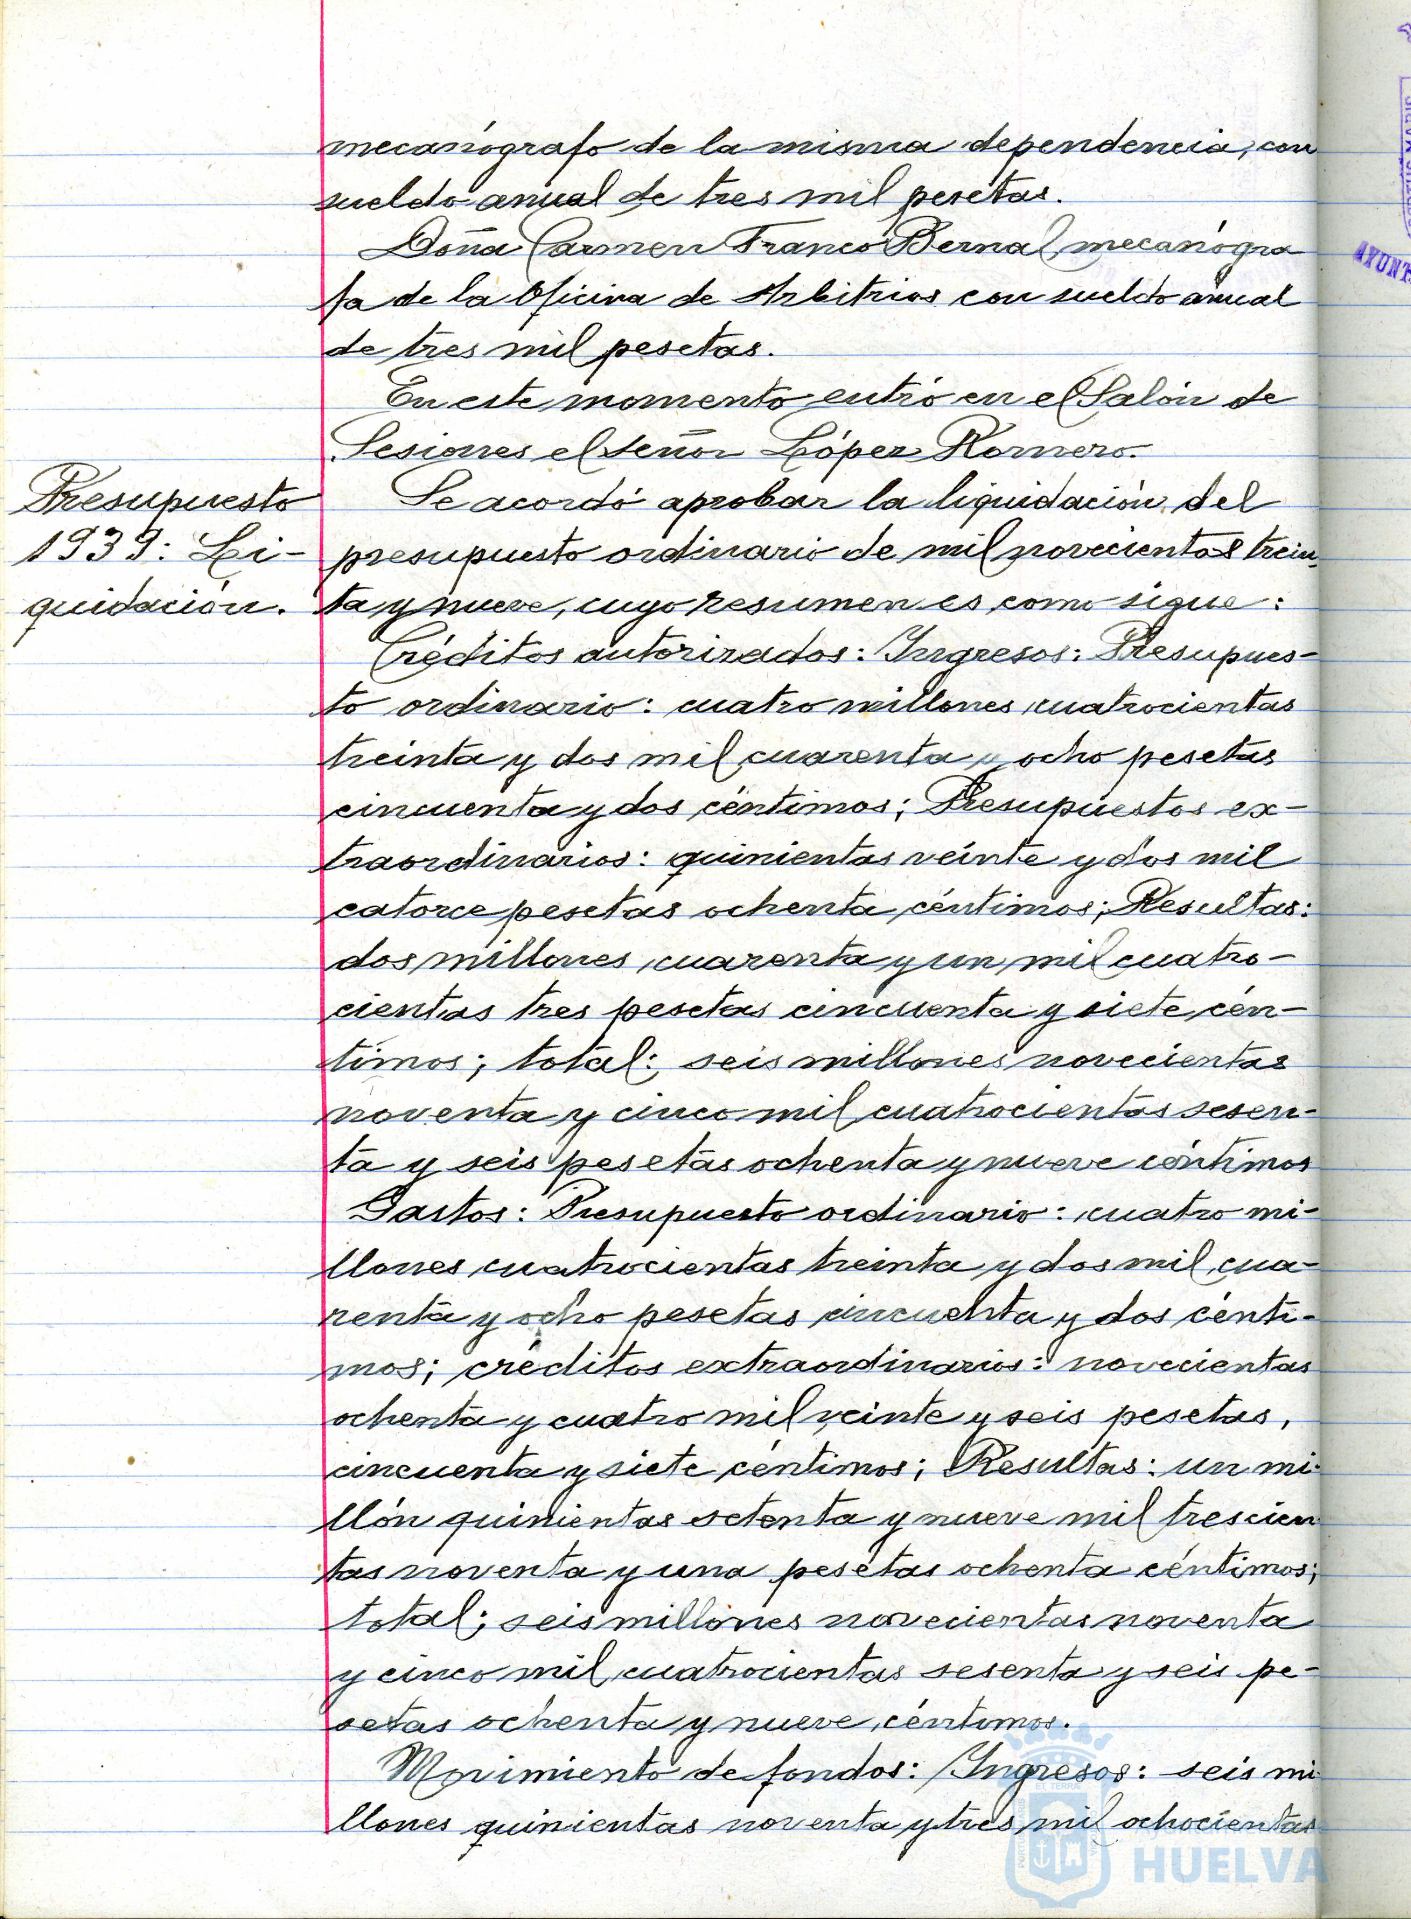 mecanógrafo de la misma dependencia, con
sueldo anual de tres mil pesetas.
Doña Carmen Franco Bernal, mecanógra
fa de la Oficina de Arbitrios con sueldo anual
de tres mil pesetas.
En este momento entró en el Salón de
Sesiones el señor López Romero.
Presupuesto
1939: Li-
quidación.
Se acordó aprobar la liquidación del
presupuesto ordinario de mil novecientos trein
ta y nueve, cuyo resumen es como sigue:
Créditos autorizados: Ingresos: Presupues-
to ordinario: cuatro millones cuatrocientas
treinta y dos mil cuarenta y ocho pesetas
cincuenta y dos céntimos; Presupuestos ex-
traordinarios: quinientas veinte y dos mil
catorce pesetas ochenta céntimos; Resultas:
dos millones cuarenta y un mil cuatro-
cientas tres pesetas cincuenta y siete cén-
timos; total: seis millones novecientas
noventa y cinco mil cuatrocientas sesen-
ta y seis pesetas ochenta y nueve céntimos
Gastos: Presupuesto ordinario: cuatro mi-
llones cuatrocientas treinta y dos mil cua-
renta y ocho pesetas cincuenta y dos cénti-
mos; créditos extraordinarios: novecientas
ochenta y cuatro mil veinte y seis pesetas,
cincuenta y siete céntimos; Resultas: un mi-
llón quinientas setenta y nueve mil trescien
tas noventa y una pesetas ochenta céntimos;
total; seis millones novecientas noventa
y cinco mil cuatrocientas sesenta y seis pe-
setas ochenta y nueve céntimos.
Movimiento de fondos: Ingresos: seis mi-
llones quinientas noventa y tres mil ochocientas
HUELVA